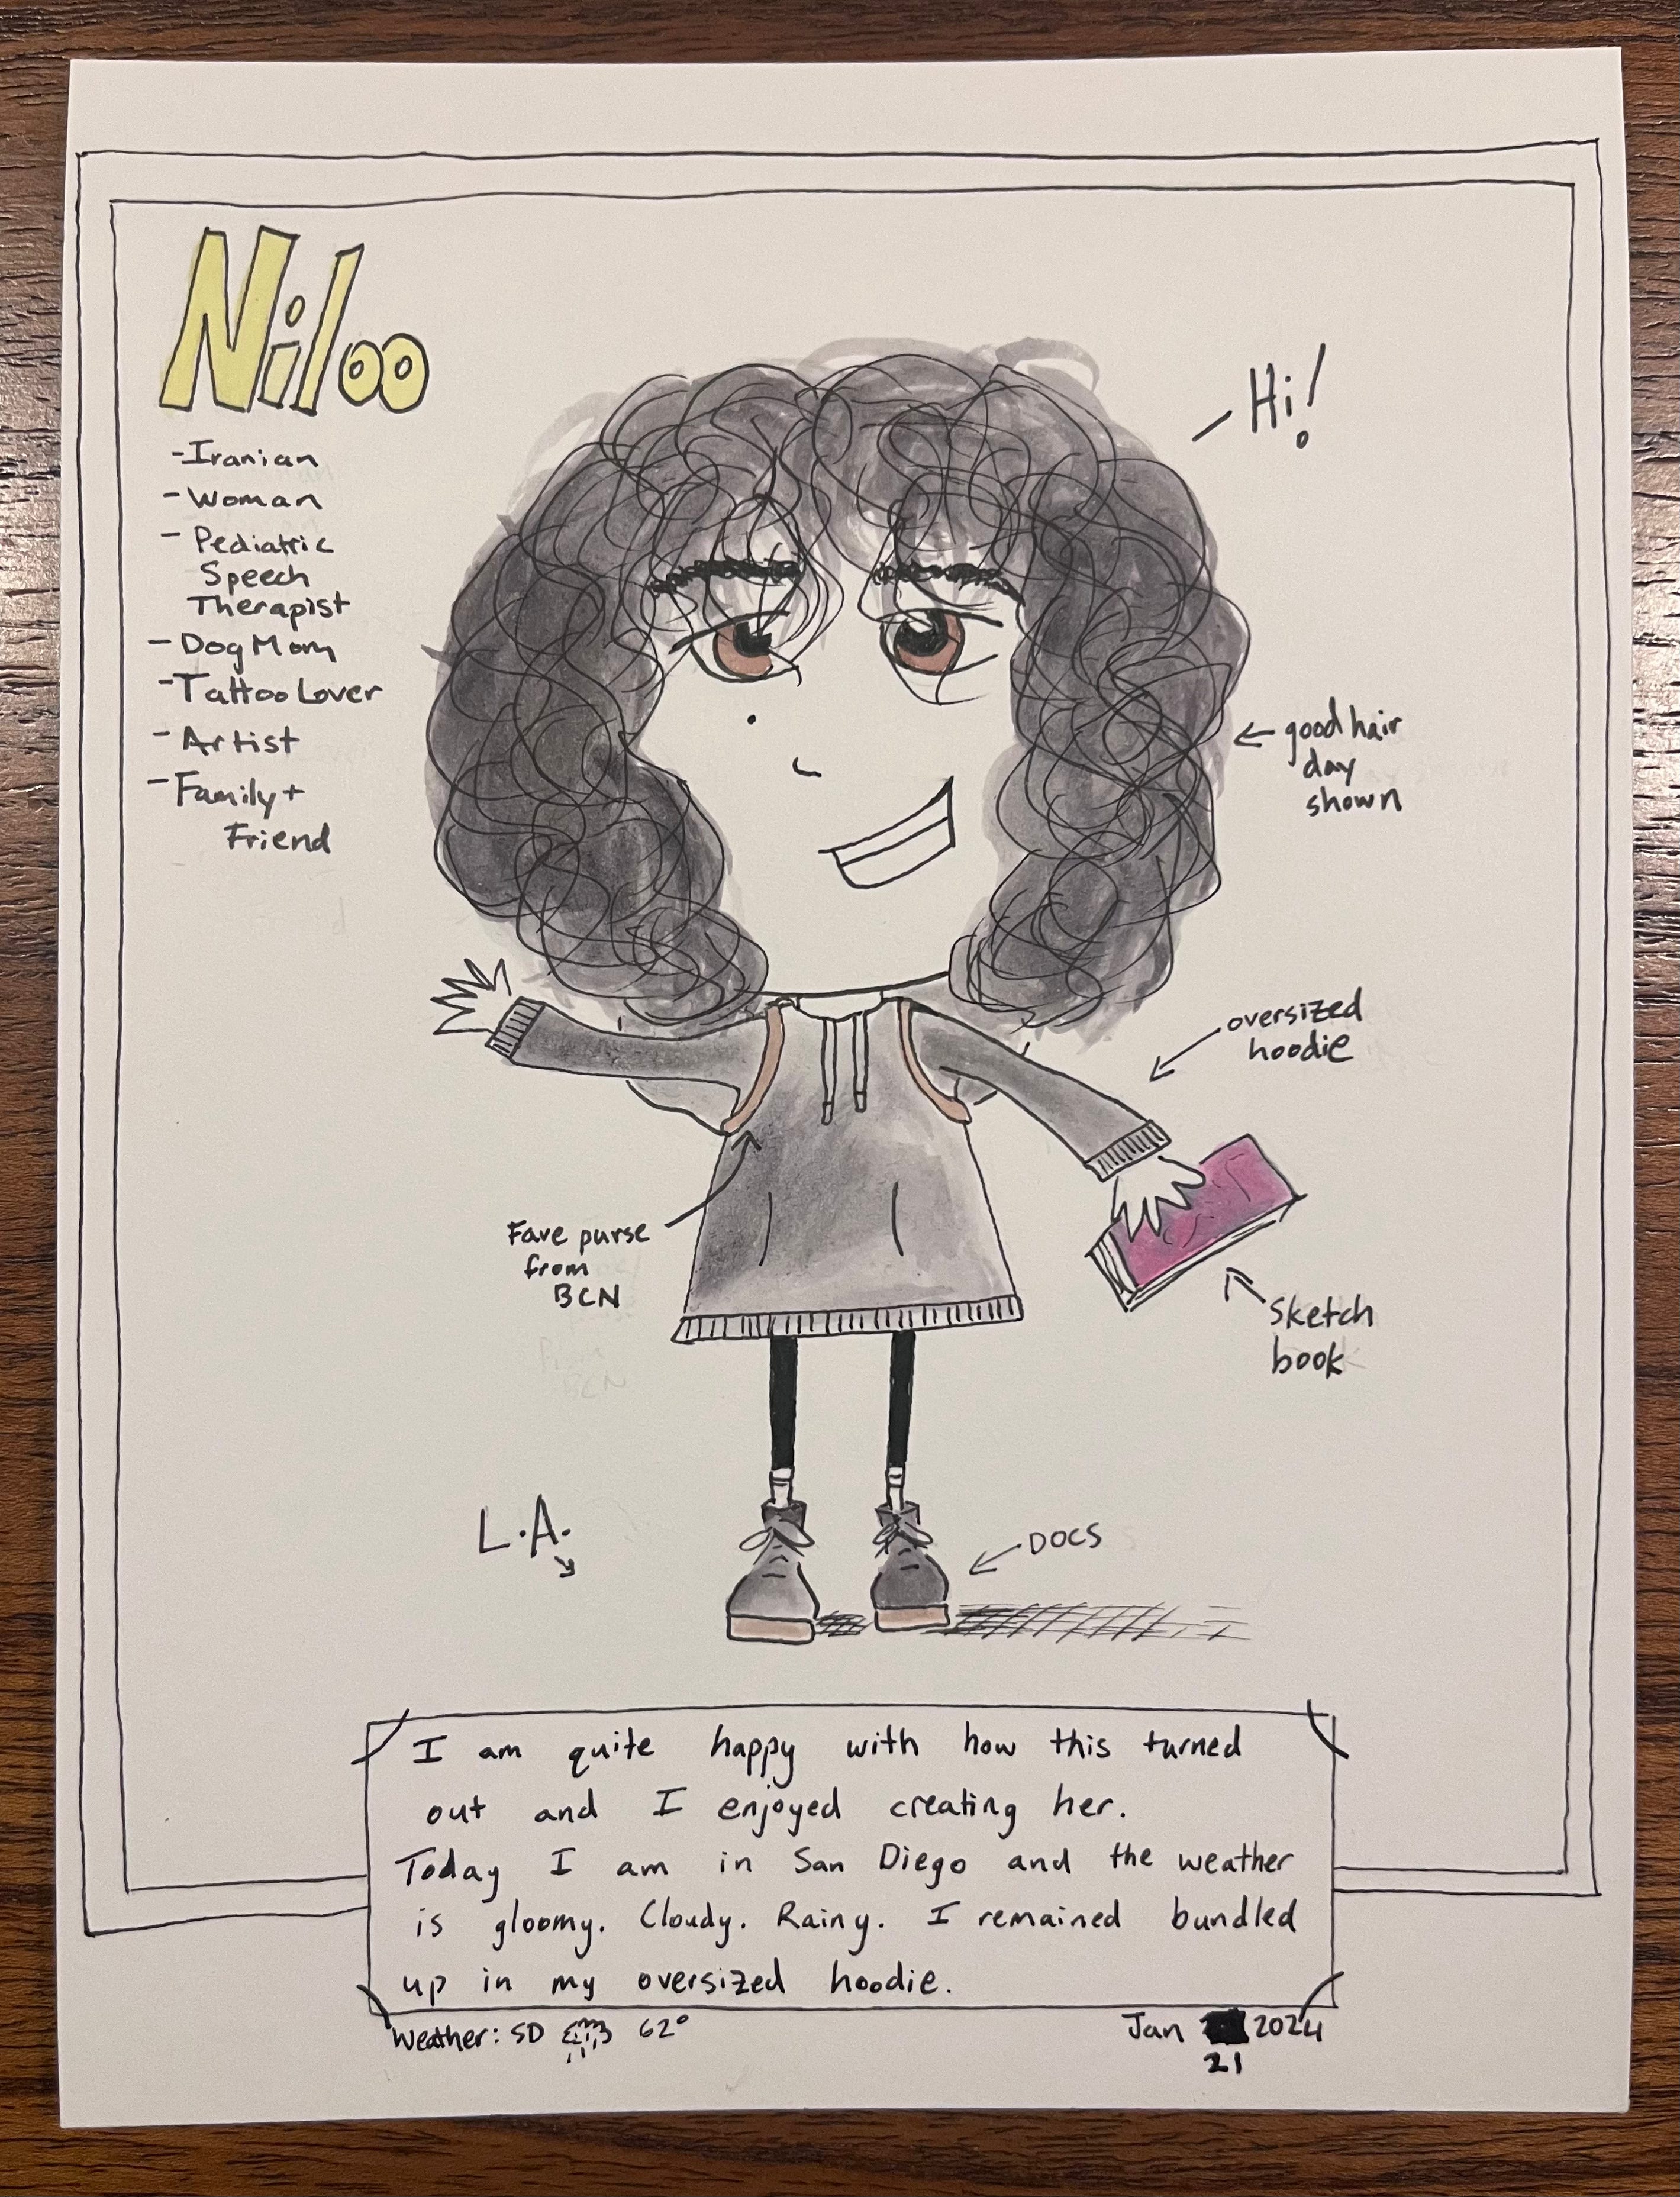 Niloo
-Iranian
-Woman
-Pediatric
Speech
Therapist
-Dog Mom
-Tattoo Lover
-Artist
-Family +
Friend
Hi!
good hair
day
shown
oversized
hoodie
Fave purse
from
BCN
Sketch
book
L.A.
DOCS
I am quite happy with how this turned
out and I enjoyed creating her.
Today I am in San Diego and the weather
is gloomy. Cloudy. Rainy. I remained bundled
up in my oversized hoodie.
Weather: SD 62°
Jan 2024
21